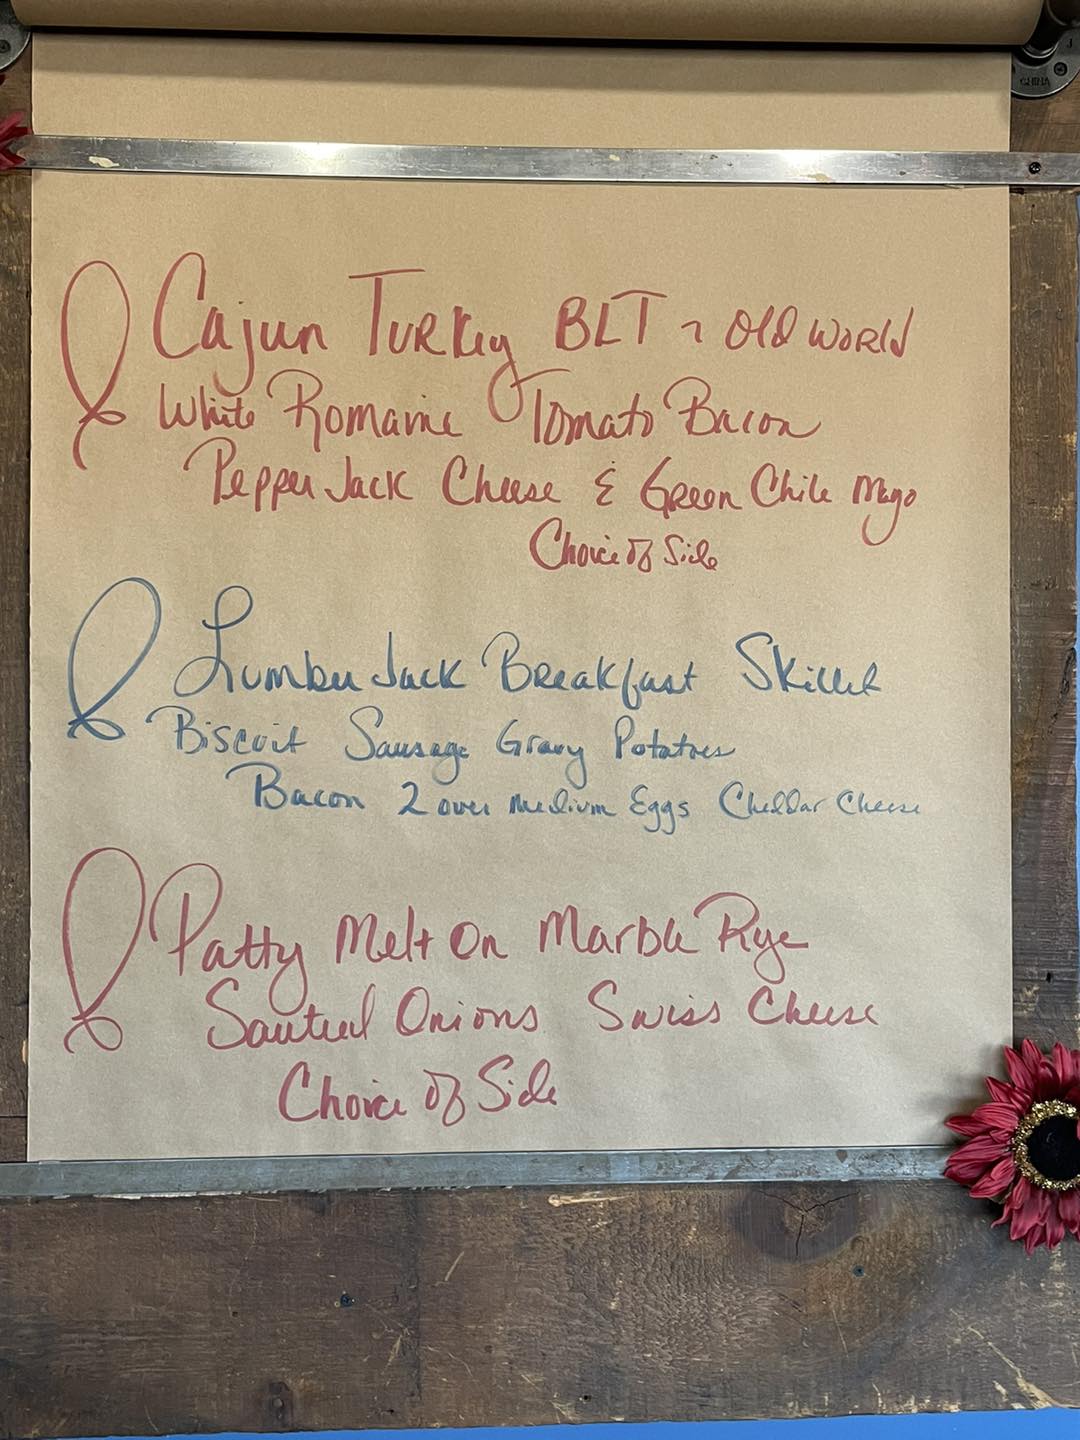 CHINA
Cajun Turkey BLT ~ Old World
White Romaine Tomato Bacon
Pepper Jack Cheese & Green Chile Mayo
Choice of Side
Lumber Jack Breakfast Skillet
Biscuit Sausage Gravy Potatoes
Bacon 2 over medium Eggs Cheddar Cheese
Patty Melt On Marble Rye
Sauteed Onions Swiss Cheese
Choice of Side